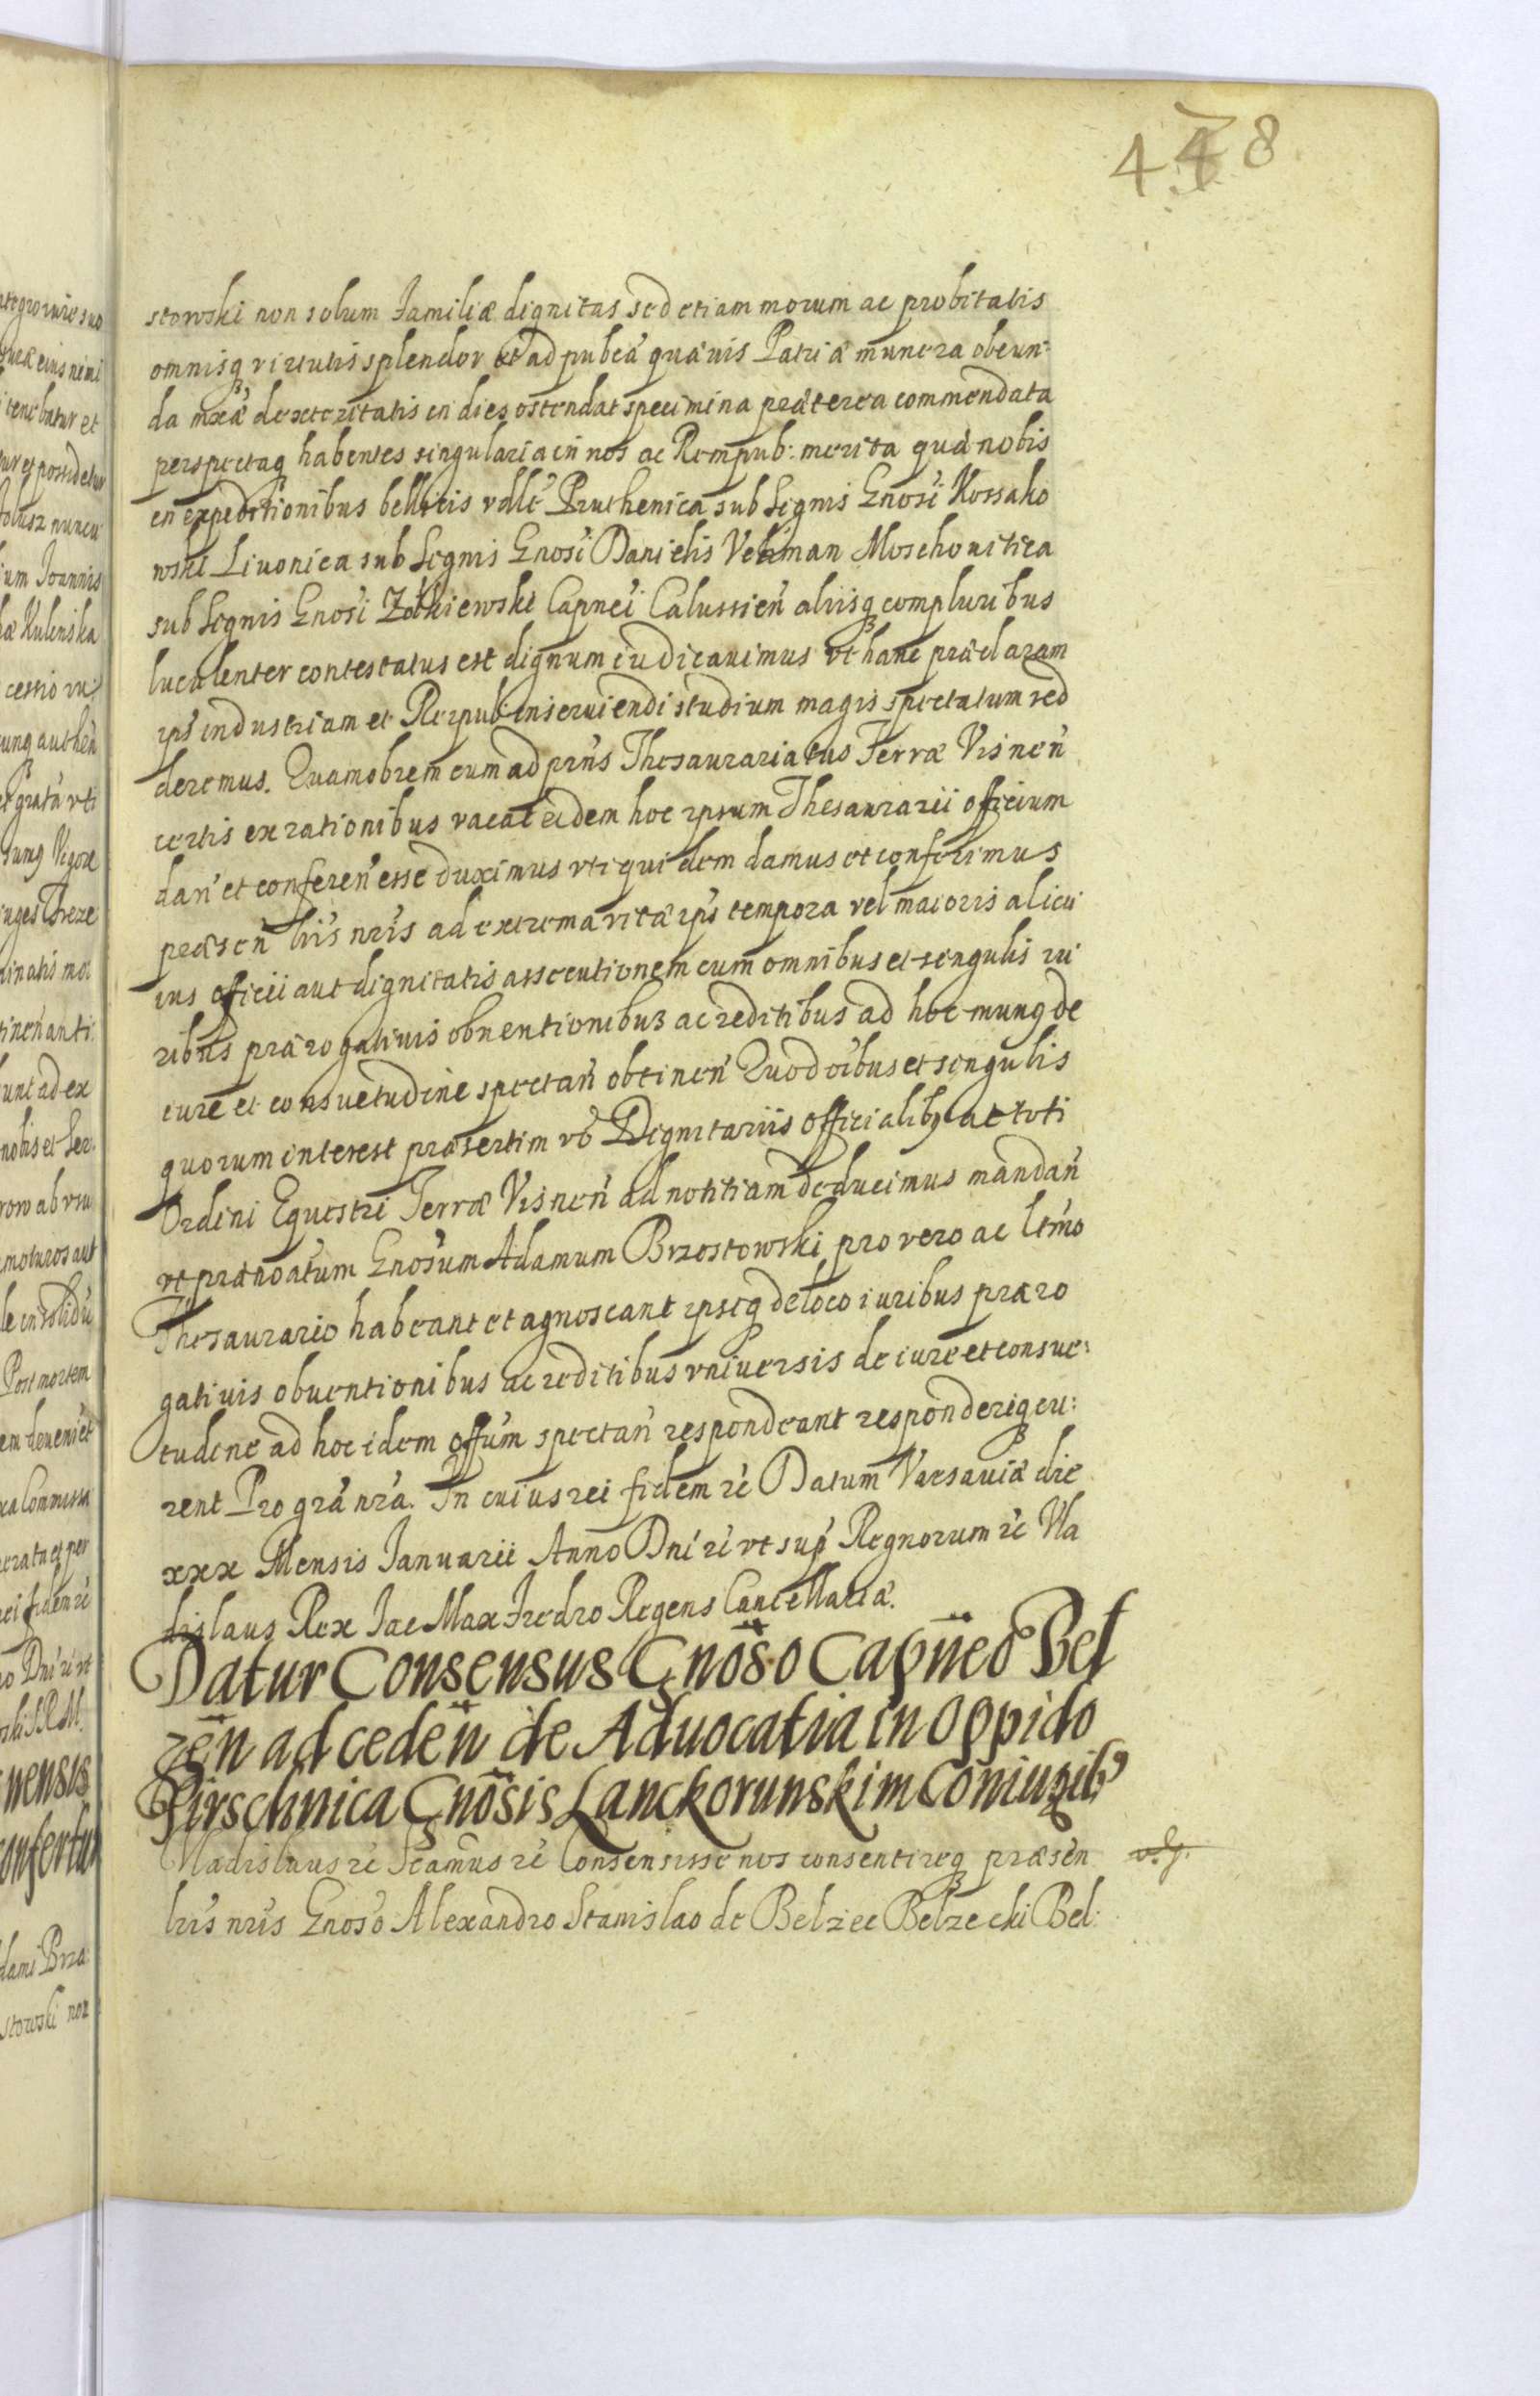 448
stowski non solum Familiæ dignitas sed etiam morum ac probitatis
omnisq virtutis splendor et ad pubcā quæuis Patriæ munera obeun:
da mxā dexteritatis in dies ostendat specimina præterea commendata
perspectaq habentes singularia in nos ac Rempub: merita quæ nobis
in expeditionibus bellicis vdlt Pruthenica sub Signis Gnosi Kossako
wski Liuonica sub Signis Gnosi Danielis Vehman Moschouitica
sub Signis Gnosi Zołkiewski Capnei Calussień aliisq compluribus
luculenter contestatus est dignum iudicauimus vt hanc præclaram
ips industriam et Reipub: inseruiendi studium magis spectatum red
deremus. Quamobrem cum ad prns Thesaurariatus Terræ Visneń
certis ex rationibus vacat eidem hoc ipsum Thesaurarii officium
dań et confereń esse duximus vti quidem damus et conferimus
præseń lris nris ad extrema vitæ ips tempora vel maioris alicu
ius officii aut dignitatis assecutionem cum omnibus et singulis iu
ribus prærogatiuis obuentionibus ac reditibus ad hoc munq de
iure et consuetudine spectań obtineń Quod oibus et singulis
quorum interest præsertim vō Dignitariis officialibq ac toti
Ordini Equestri Terræ Visneń ad notitiam deducimus mandań
vt prænoatum Gnosum Adamum Brzostowski pro vero ac ltmo
Thesaurario habeant et agnoscant ipseq de loco iuribus præro
gatiuis obuentionibus ac reditibus vniuersis de iure et consue:
tudine ad hoc idem offum spectań respondeant responderiq cu:
rent Pro gra nra. In cuius rei fidem rc Datum Varsauiæ die
xxx Mensis Ianuarii Anno Dni ri vt sup Regnorum rc Vla
dislaus Rex Iac Max Fredro Regens Cancellariæ.
Datur Consensus Gnoso Capneo Bel
zen ad ceden de Aduocatia in Oppido
Pirschnica Gnosis Lanckorunskim Coniugibq
Vladislaus rc Scamus rc Consensisse nos consentireq præsen
lris nris Gnoso Alexandro Stanislao de Belziec Belzecki Bel: